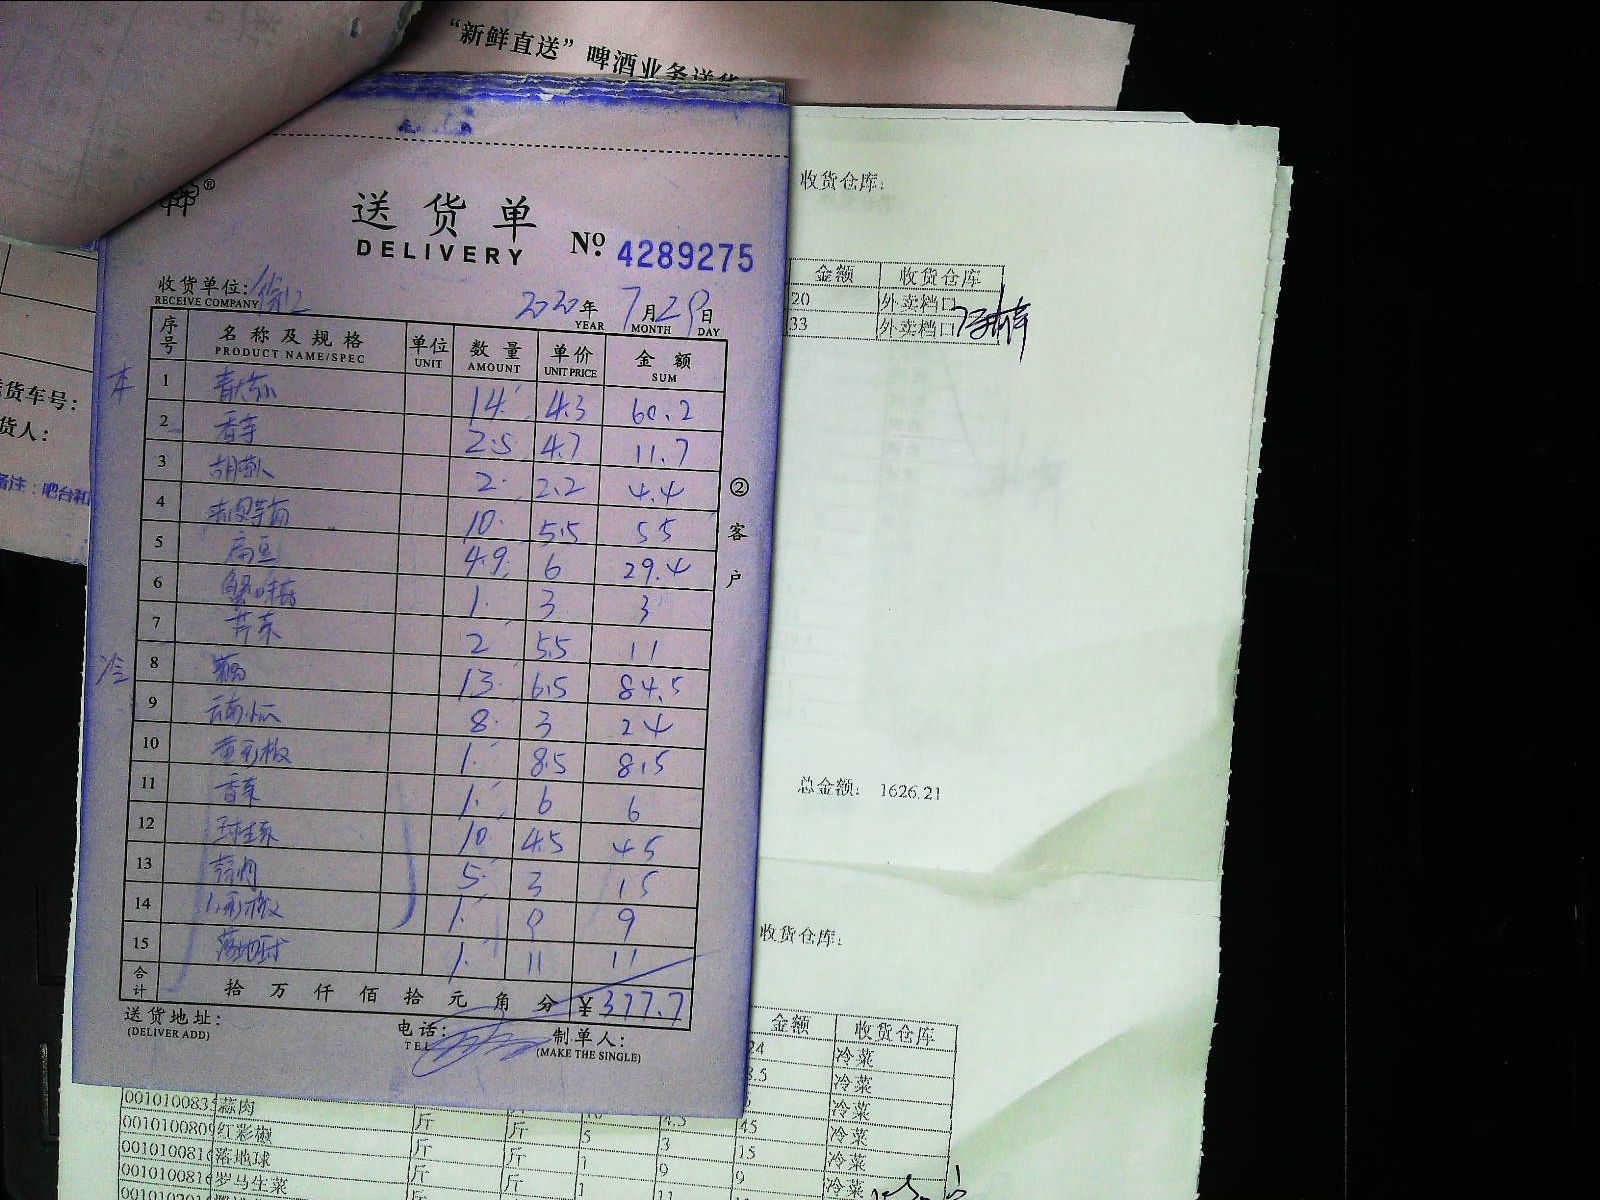 “新鲜直送”啤酒业务送货
送货单
DELIVERY
№ 4289275
收货单位: 徐汇
RECEIVE COMPANY
2020年 7月 29日
YEAR MONTH DAY
序号 名称及规格 单位 数量 单价 金额
PRODUCT NAME/SPEC UNIT AMOUNT UNIT PRICE SUM
本
1 14 4.3 60.2
2 香芹 2.5 4.7 11.7
3 胡萝卜 2 2.2 4.4
4 10 5.5 55
5 扁豆 4.9 6 29.4
6 蟹味菇 1 3 3
7 芹菜 2 5.5 11
冷
8 13 6.5 84.5
9 云南小瓜 8 3 24
10 黄彩椒 1 8.5 8.5
11 香菜 1 6 6
12 球生菜 10 4.5 45
13 蒜肉 5 3 15
14 红彩椒 1 9 9
15 落地球 1 11 11
合计 拾万仟佰拾元角分 ¥377.7
送货地址:
(DELIVER ADD)
电话:
TEL
制单人:
(MAKE THE SINGLE)
② 客户
货车号:
货人:
备注:吧台
收货仓库:
金额 收货仓库
20 外卖档口
33 外卖档口
总金额: 1626.21
收货仓库:
金额 收货仓库
24 冷菜
8.5 冷菜
冷菜
0010100835 蒜肉 斤 斤 10 4.5 45 冷菜
0010100809 红彩椒 斤 斤 5 3 15 冷菜
001010081 落地球 斤 斤 1 9 9 冷菜
001010081 罗马生菜 斤 斤 1 11